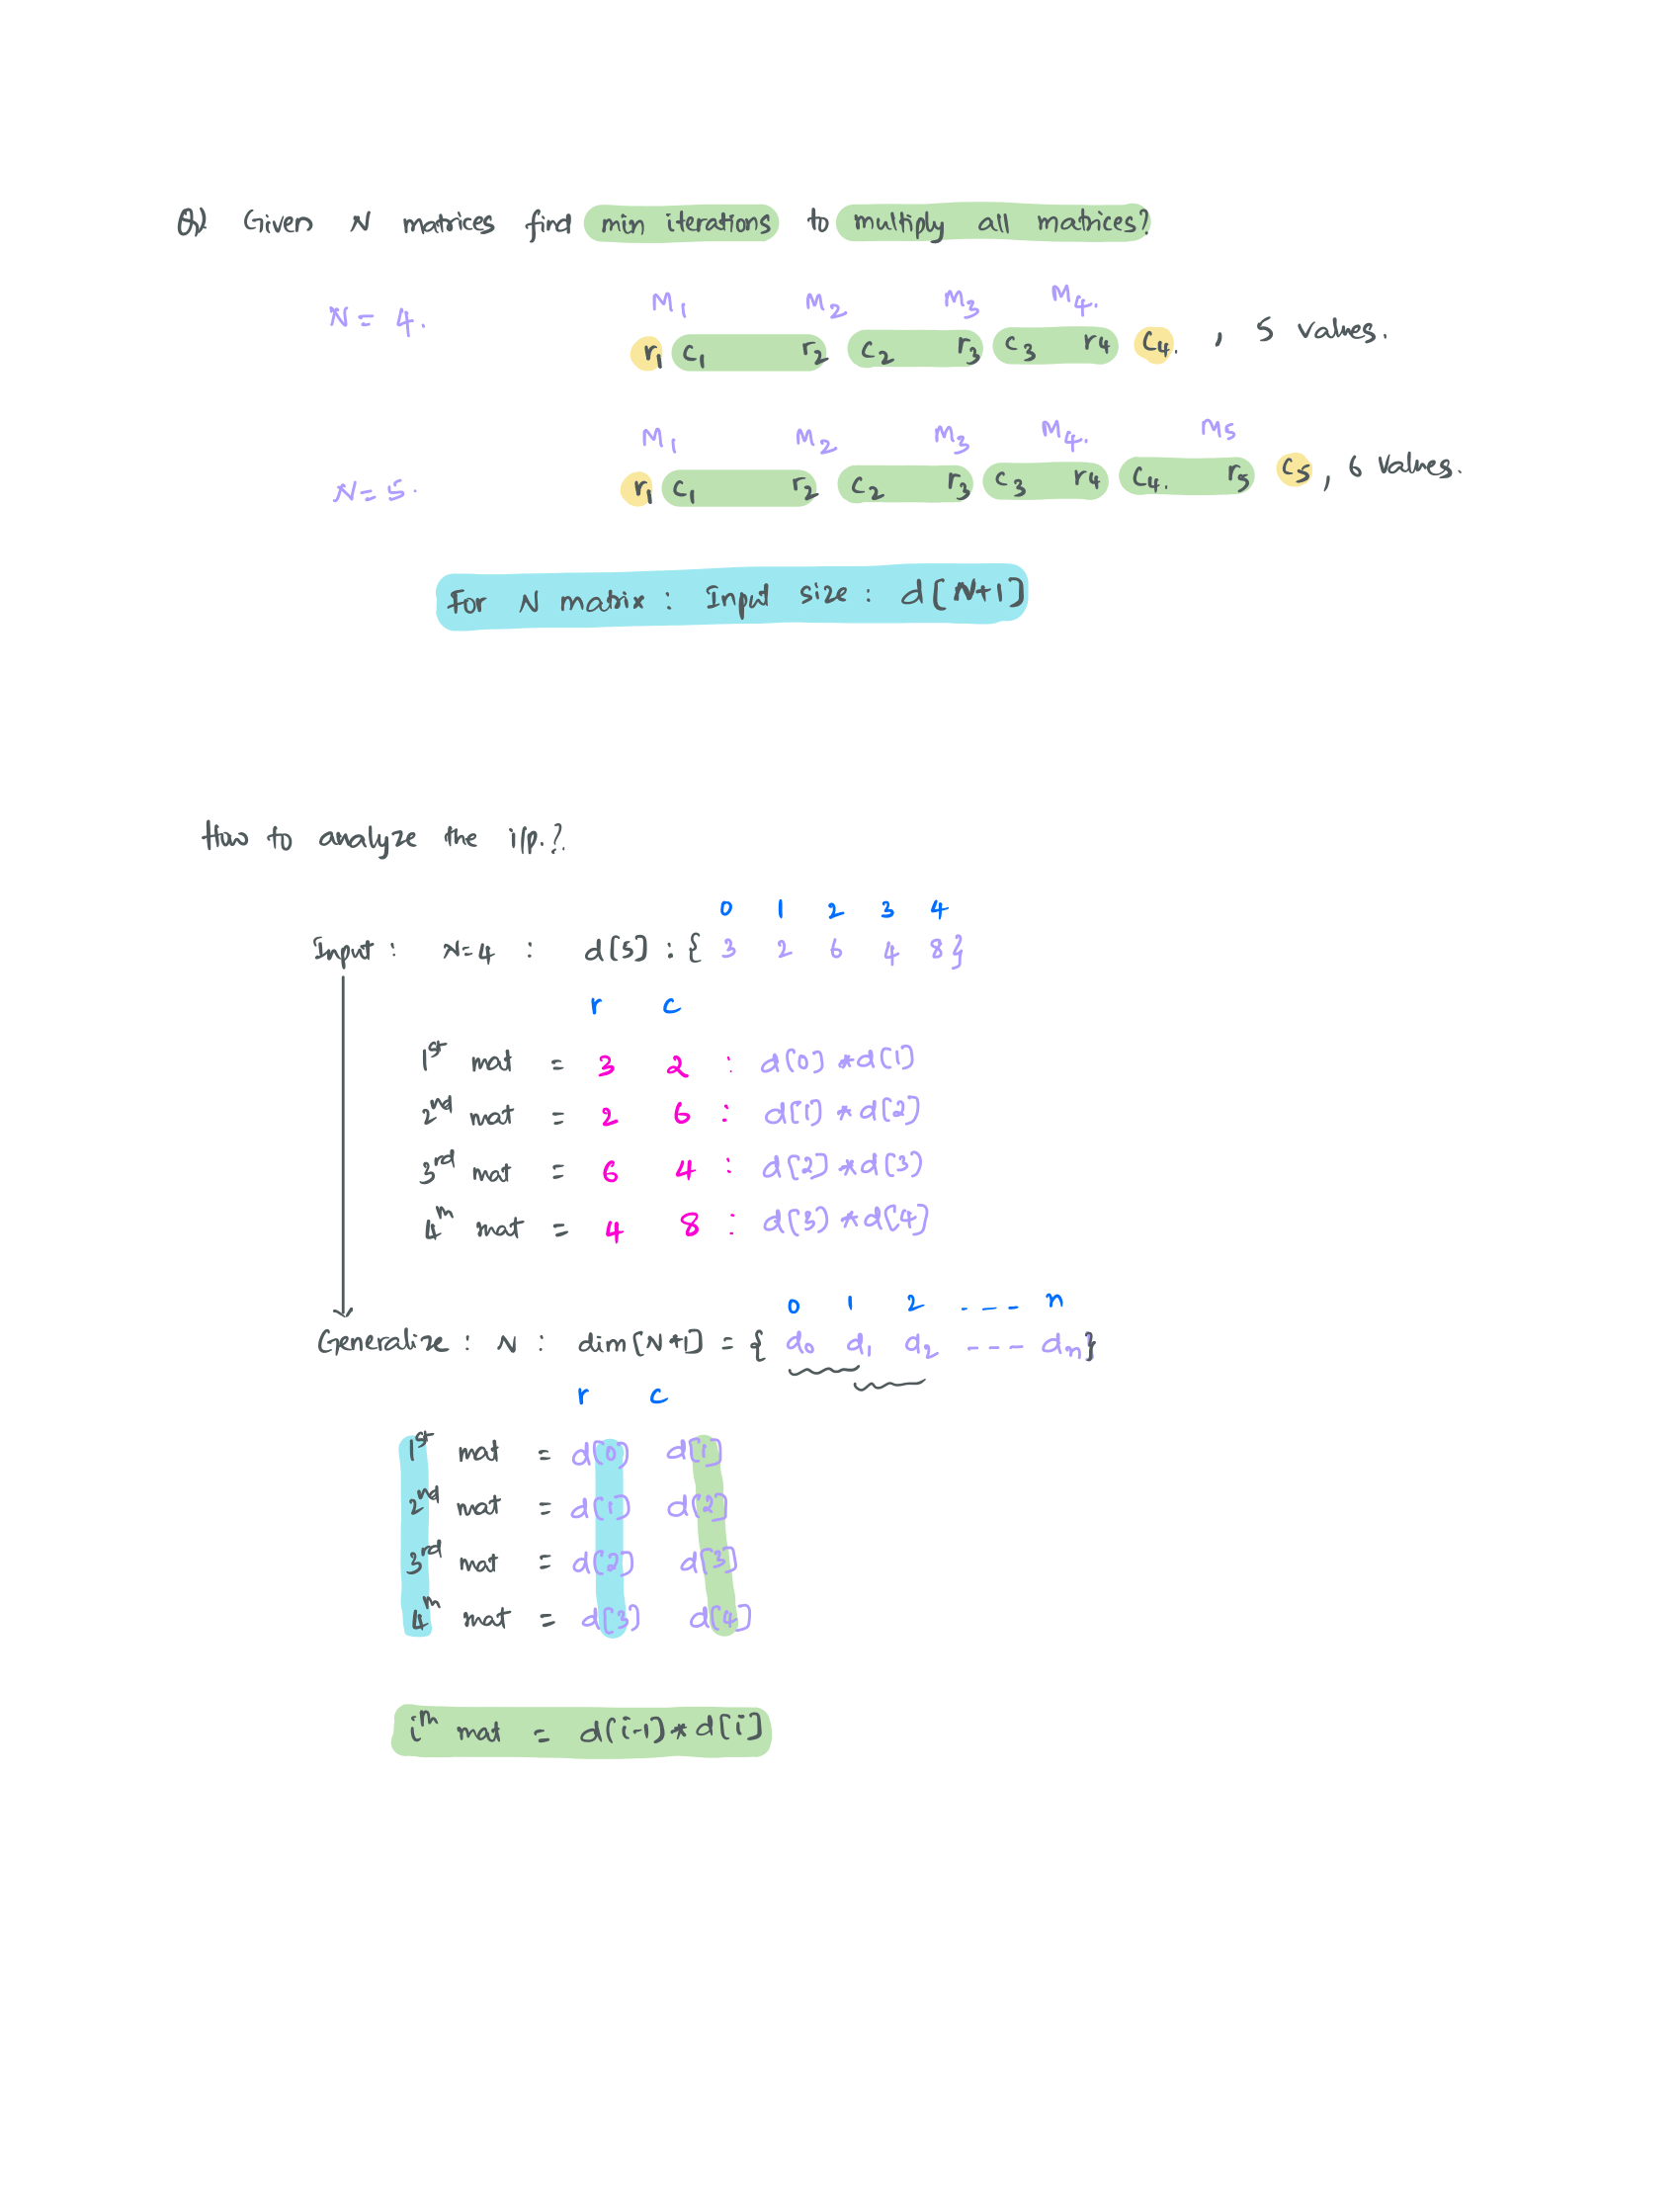 Q) Given N matrices find min iterations to multiply all matrices?
N = 4.
M1 M2 M3 M4.
r1 c1 r2 c2 r3 c3 r4 c4. , 5 values.
M1 M2 M3 M4. M5
N = 5. r1 c1 r2 c2 r3 c3 r4 c4. r5 c5 , 6 values.
For N matrix : Input size : d[N+1]
How to analyze the i/p.?
0 1 2 3 4
Input : N=4 : d[5] : { 3 2 6 4 8 }
r c
1st mat = 3 2 : d[0] * d[1]
2nd mat = 2 6 : d[1] * d[2]
3rd mat = 6 4 : d[2] * d[3]
4th mat = 4 8 : d[3] * d[4]
0 1 2 ---- n
Generalize : N : dim[N+1] = { d0 d1 d2 ---- dn }
r c
1st mat = d[0] d[1]
2nd mat = d[1] d[2]
3rd mat = d[2] d[3]
4th mat = d[3] d[4]
ith mat = d[i-1] * d[i]